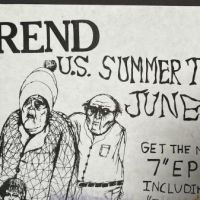 REND
U.S. SUMMER T
JUNE
GET THE N
7" EP
INCLUDIN